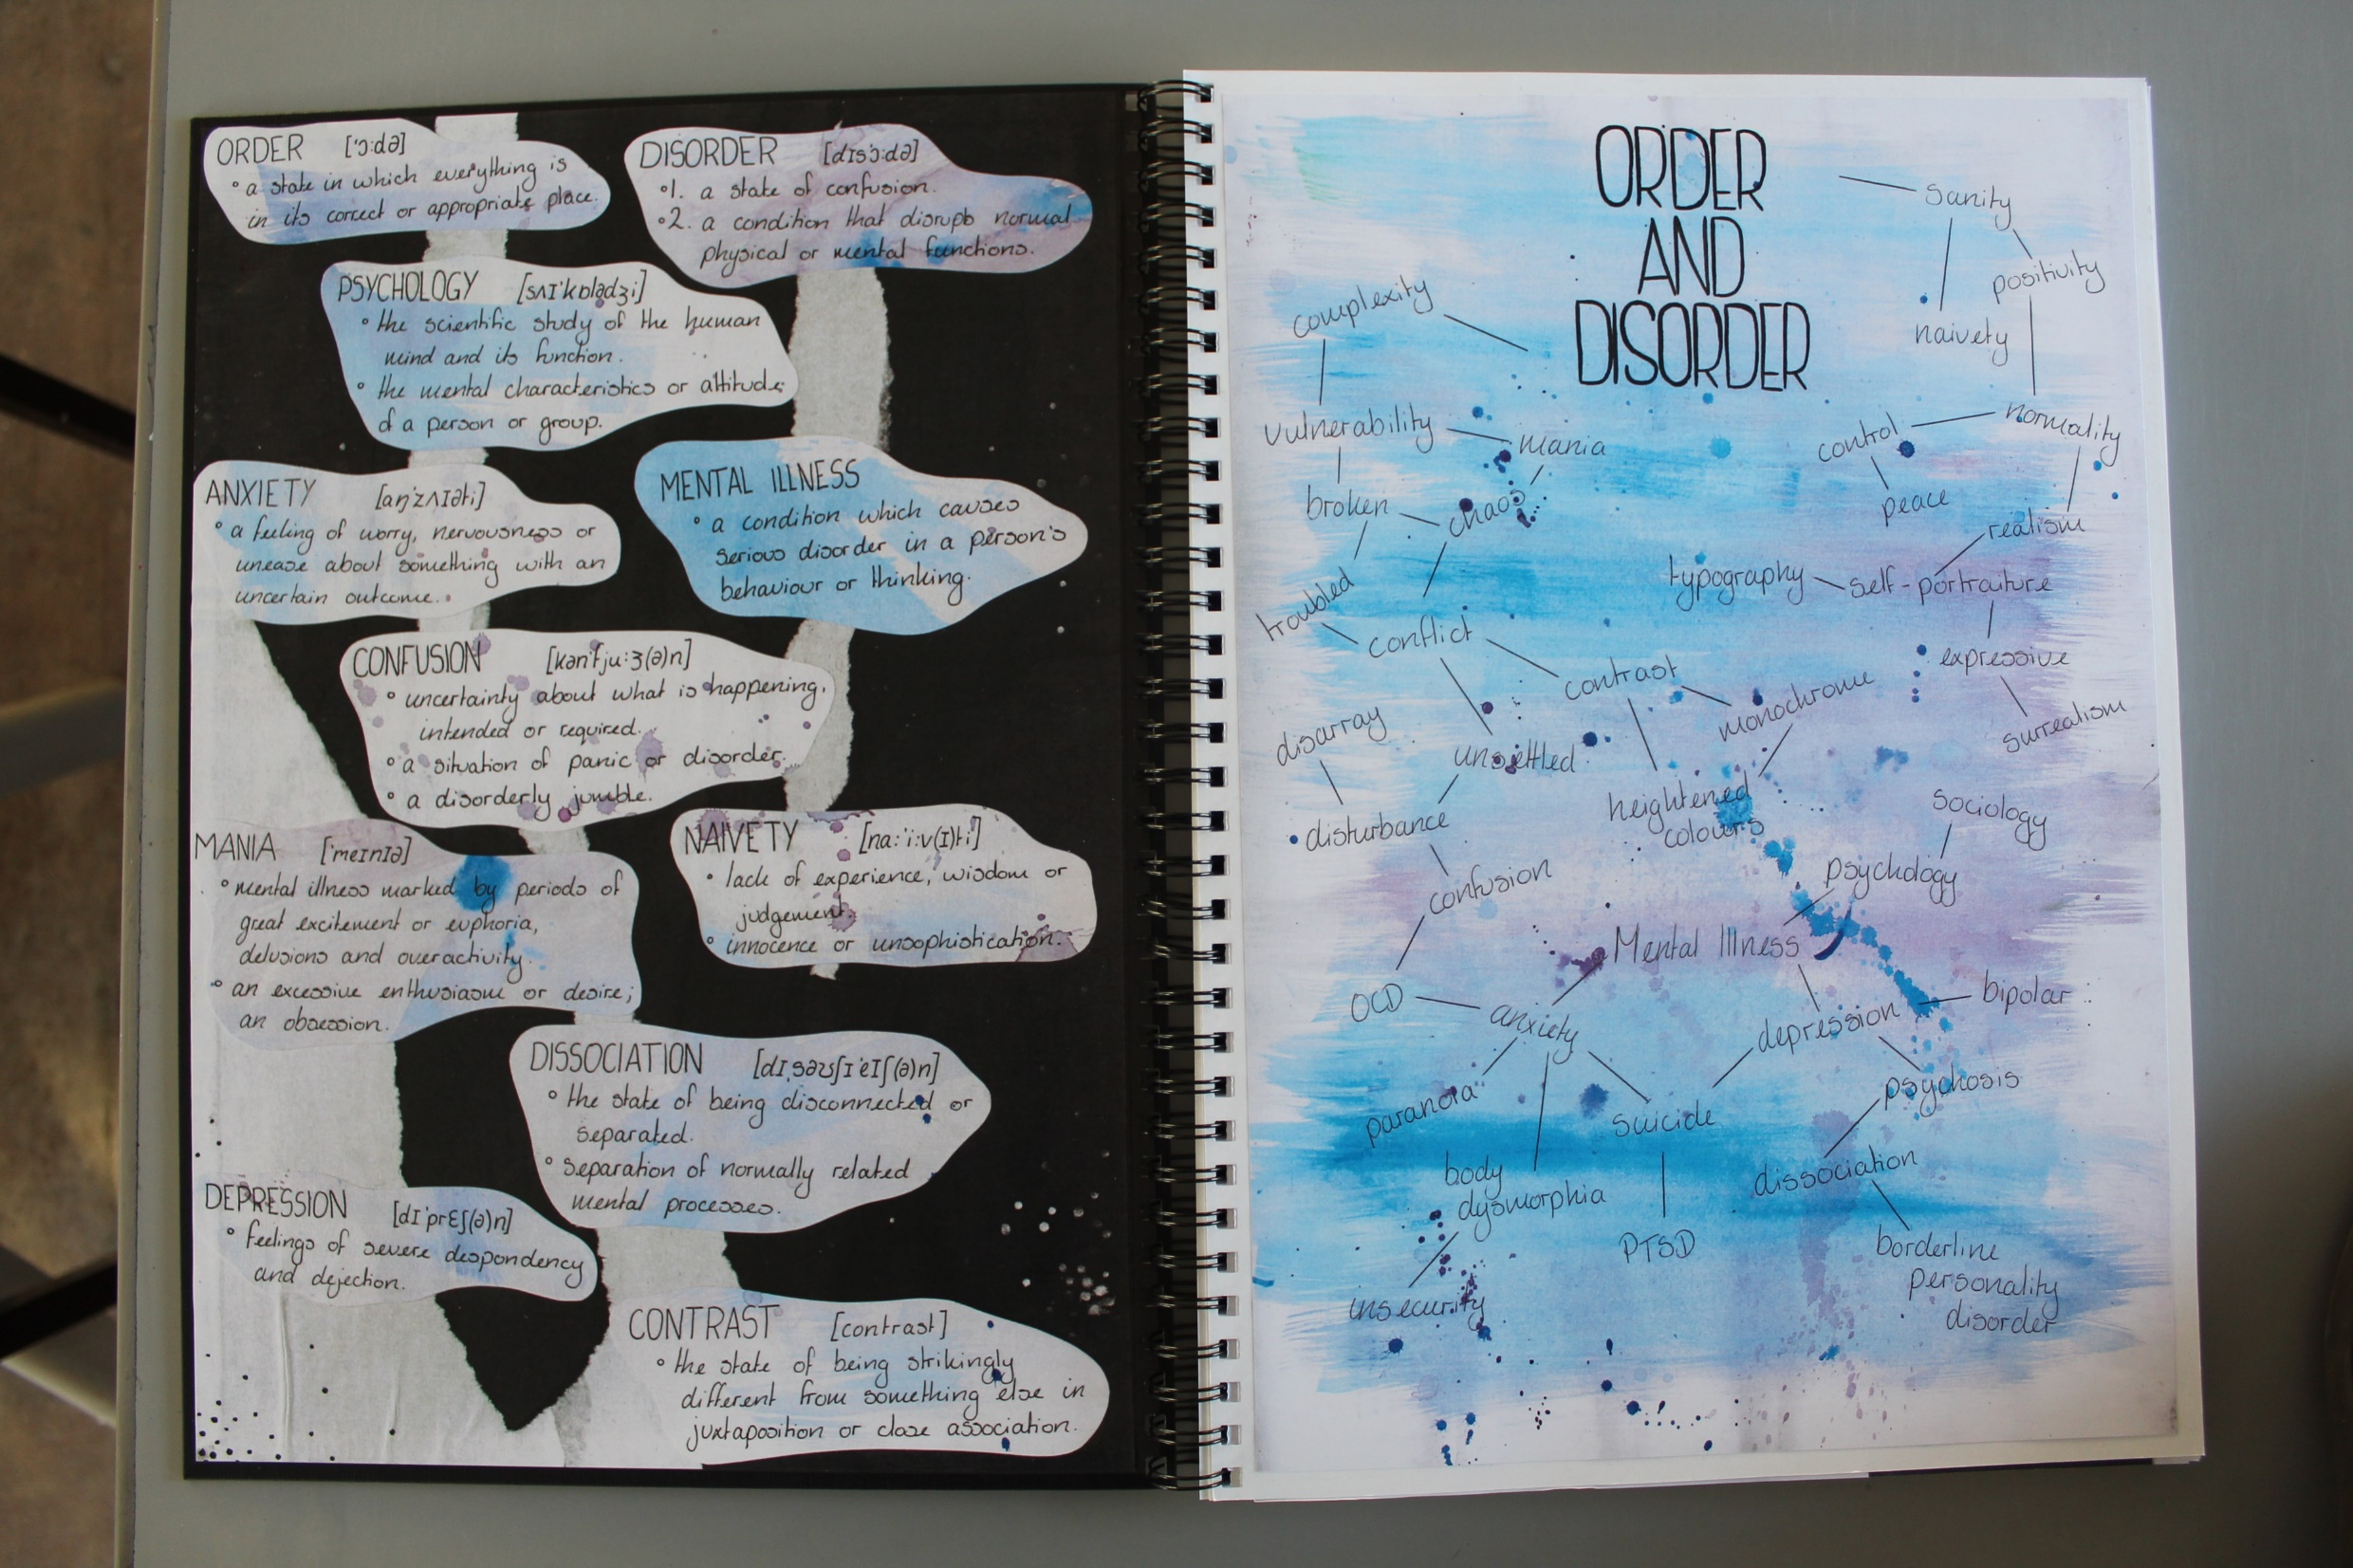 ORDER ['ɔ:də]
° a state in which everything is
in its correct or appropriate place.
DISORDER [dɪsɔ:də]
°1. a state of confusion.
°2. a condition that disrupts normal
physical or mental functions.
PSYCHOLOGY [sʌɪ'kɒlədʒi]
° the scientific study of the human
mind and its function.
° the mental characteristics or attitude
of a person or group.
ANXIETY [aŋ'zʌɪəti]
° a feeling of worry, nervousness or
unease about something with an
uncertain outcome.
MENTAL ILLNESS
° a condition which causes
serious disorder in a person's
behaviour or thinking.
CONFUSION [kən'fju:ʒ(ə)n]
° uncertainty about what is happening,
intended or required.
° a situation of panic or disorder.
° a disorderly jumble.
MANIA ['meɪnɪə]
° mental illness marked by periods of
great excitement or euphoria,
delusions and overactivity.
° an excessive enthusiasm or desire;
an obsession.
NAIVETY [na:'i:v(ɪ)ti]
° lack of experience, wisdom or
judgement.
° innocence or unsophistication.
DISSOCIATION [dɪˌsəʊʃɪ'eɪʃ(ə)n]
° the state of being disconnected or
separated.
° separation of normally related
mental processes.
DEPRESSION [dɪ'prɛʃ(ə)n]
° feelings of severe despondency
and dejection.
CONTRAST [contrast]
° the state of being strikingly
different from something else in
juxtaposition or close association.
ORDER
AND
DISORDER
sanity
positivity
naivety
complexity
normality
control
vulnerability
mania
peace
broken
chaos
realism
typography
self-portraiture
troubled
conflict
expressive
contrast
monochrome
surrealism
disarray
unsettled
heightened
colours
sociology
disturbance
psychology
confusion
Mental Illness
OCD
anxiety
depression
bipolar
paranoia
suicide
psychosis
body
dysmorphia
dissociation
PTSD
borderline
personality
disorder
insecurity